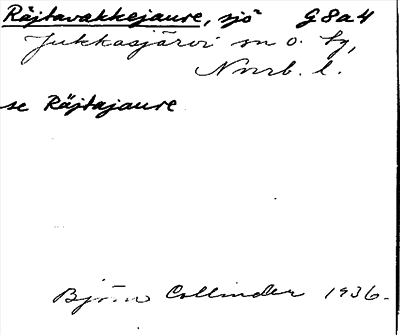 Räjtavakkejaure, sjö G8a4
Jukkasjärvi sn o. tg,
Nrrb. l.
se Räjtajaure
Björn Collinder 1936.